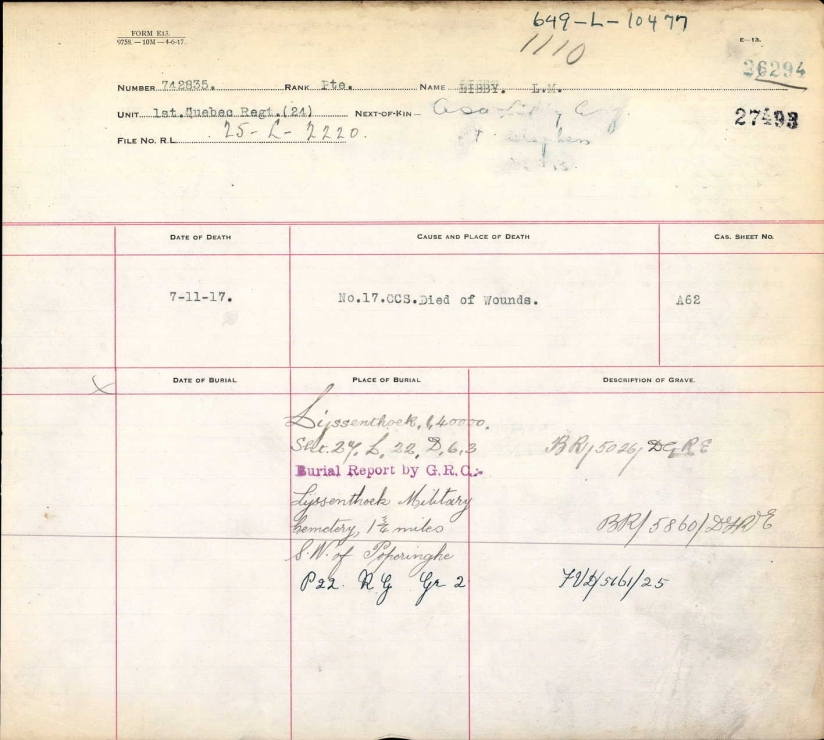 649-L-10477
1110
FORM E13.
9758.—10M—4-6-17.
E—13.
36294
NUMBER 742835. RANK Pte. NAME LIBBY. L.M.
UNIT 1st.Quebec Regt.(24) NEXT-OF-KIN—
27493
FILE No. R.L. 25-L-2220.
DATE OF DEATH CAUSE AND PLACE OF DEATH CAS. SHEET No.
7-11-17. No.17.CCS.Died of Wounds. A62
X DATE OF BURIAL PLACE OF BURIAL DESCRIPTION OF GRAVE.
Lijssenthoek, 1/40000.
Sht. 27. L, 22, D, 6, 3 BR/5026/DGRE
Burial Report by G.R.C:-
Lijssenthoek Military
Cemetery, 1¾ miles BR/5860/DGRE
S.W. of Poperinghe
P22. R G Gr 2